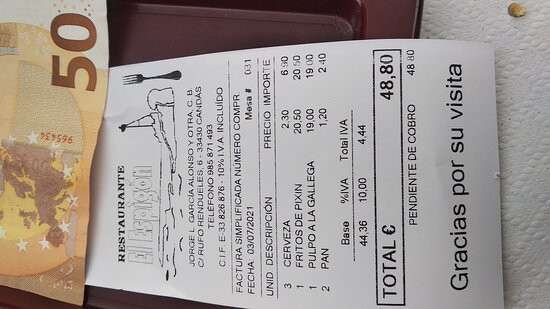 50
RESTAURANTE
El Espigón
JORGE L. GARCÍA ALONSO Y OTRA, C. B.
C/ RUFO RENDUELES, 6 - 33430 CANDAS
TELÉFONO 985 871 493
C.I.F. E-33 826 876 - 10% I.V.A. INCLUÍDO
FACTURA SIMPLIFICADA NÚMERO COMPR.
FECHA: 03/07/2021 Mesa # 031
UNID DESCRIPCIÓN PRECIO IMPORTE
3 CERVEZA 2.30 6.90
1 FRITOS DE PIXIN 20,50 20.50
1 PULPO A LA GALLEGA 19,00 19.00
2 PAN 1,20 2.40
Base %IVA Total IVA
44.36 10,00 4,44
TOTAL € 48,80
PENDIENTE DE COBRO 48.80
Gracias por su visita